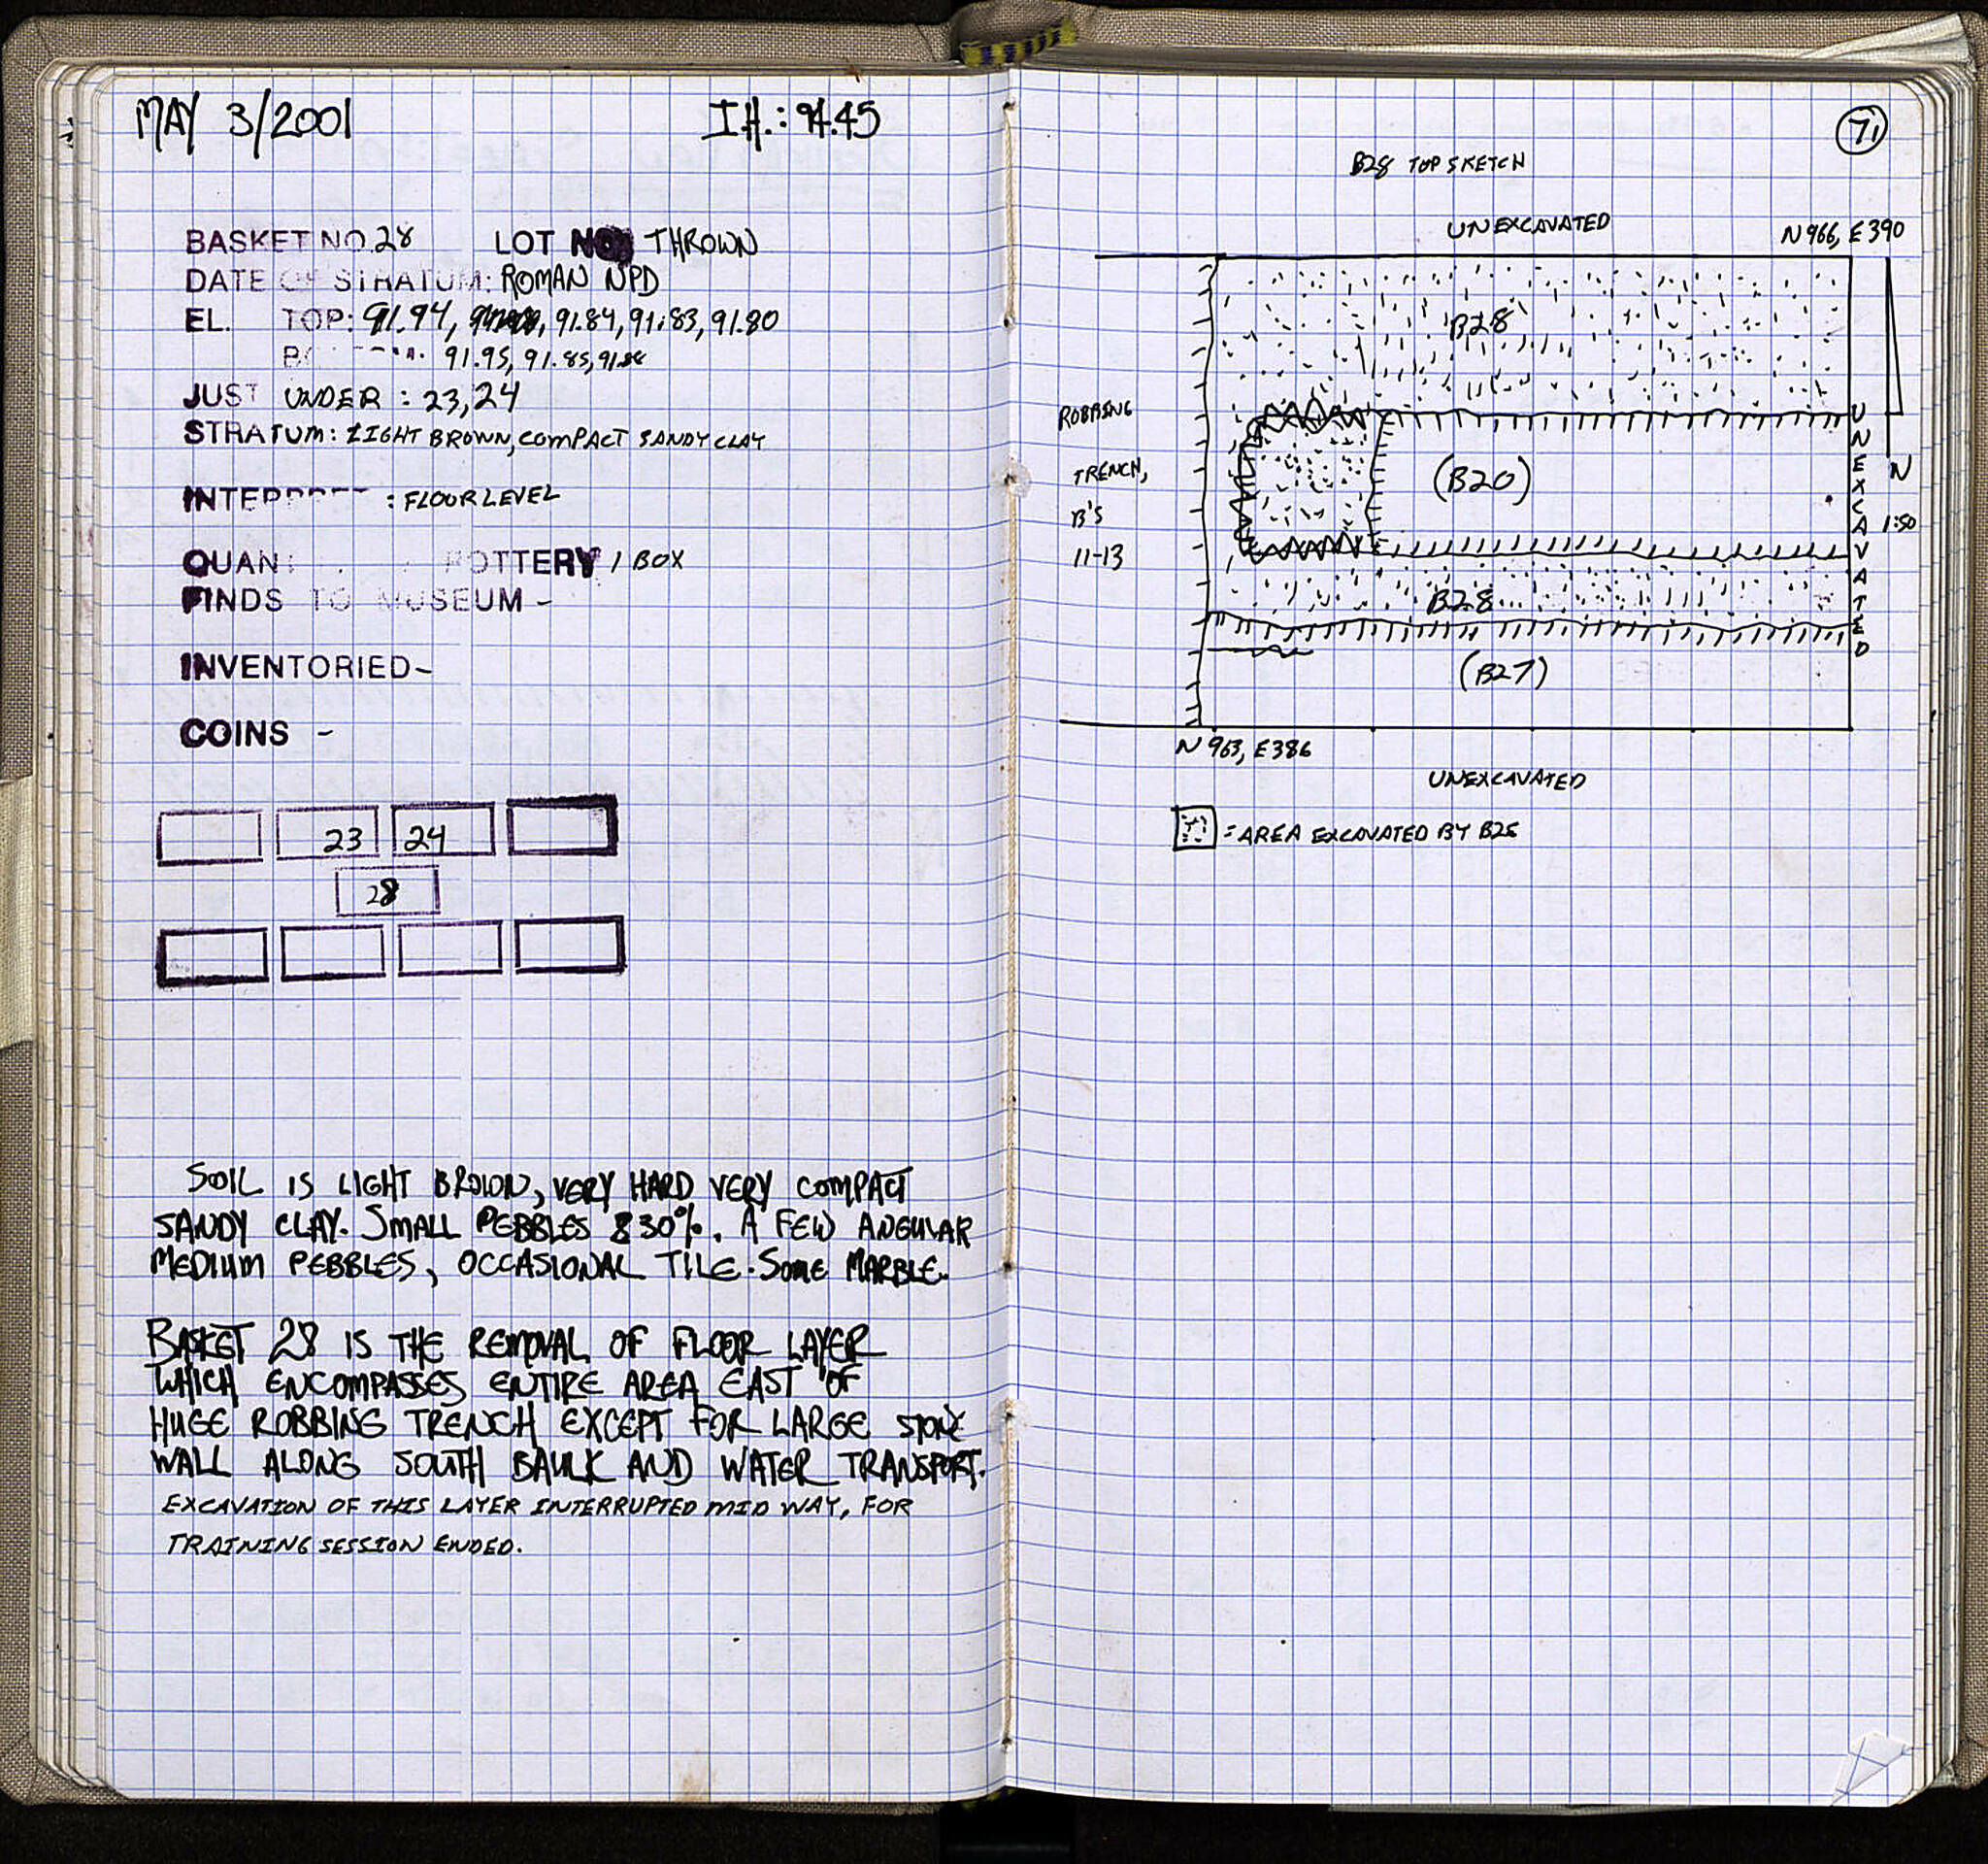 MAY 3/2001
I.H.: 94.45
BASKET NO. 28 LOT NO THROWN
DATE OF STRATUM: ROMAN NPD
EL. TOP: 91.94, 91.84, 91.83, 91.80
91.95, 91.85,
JUST UNDER : 23, 24
STRATUM: LIGHT BROWN, COMPACT SANDY CLAY
: FLOOR LEVEL
POTTERY 1 BOX
FINDS TO MUSEUM -
INVENTORIED-
COINS -
23 24
28
SOIL IS LIGHT BROWN, VERY HARD VERY COMPACT
SANDY CLAY. SMALL PEBBLES 30%. A FEW ANGULAR
MEDIUM PEBBLES, OCCASIONAL TILE. SOME MARBLE.
BASKET 28 IS THE REMOVAL OF FLOOR LAYER
WHICH ENCOMPASSES ENTIRE AREA EAST OF
HUGE ROBBING TRENCH EXCEPT FOR LARGE STONE
WALL ALONG SOUTH BAULK AND WATER TRANSPORT.
EXCAVATION OF THIS LAYER INTERRUPTED MID WAY, FOR
TRAINING SESSION ENDED.
71
B28 TOP SKETCH
UNEXCAVATED
N 966, E 390
B28
ROBBING
TRENCH,
B'S
11-13
(B20)
UNEXCAVATED
N
1:50
B28
(B27)
N 963, E 386
UNEXCAVATED
= AREA EXCAVATED BY B28